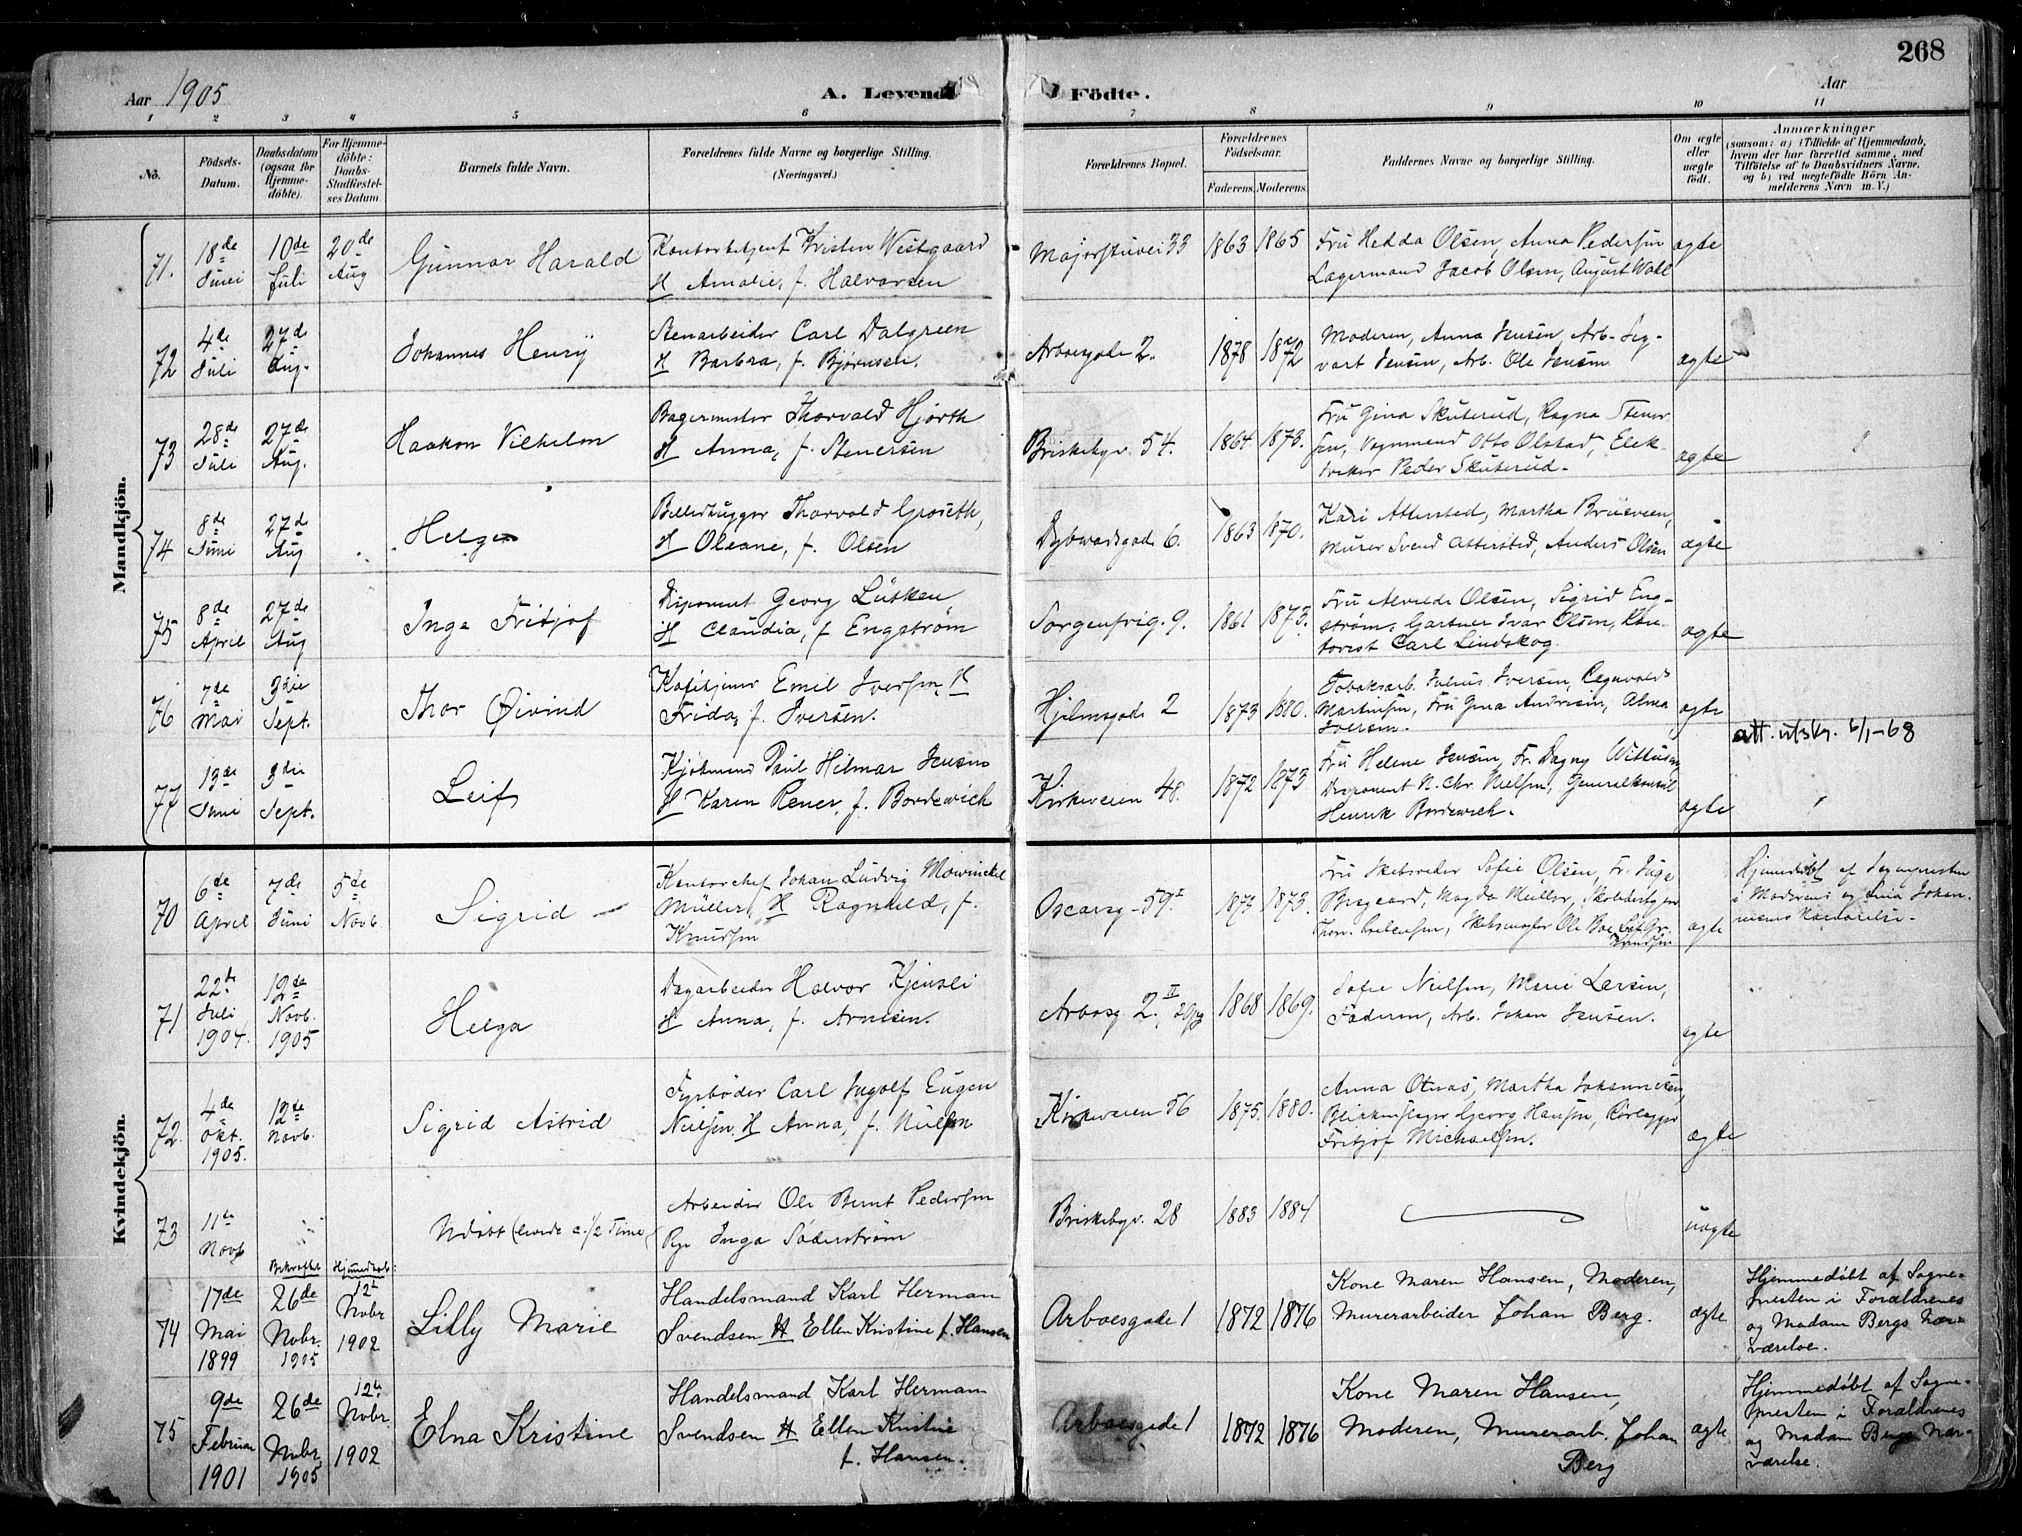 268
Aar 1905
A. Levende Födte.
Aar
1 2 3 4 5 6 7 8 9 10 11
No.
Födsels-Datum.
Daabsdatum (ogsaa for Hjemme-döbte).
For Hjemme-döbte: Daabs-Stadfæstel-ses Datum.
Barnets fulde Navn.
Forældrenes fulde Navne og borgerlige Stilling. (Næringsvei.)
Forældrenes Bopæl.
Forældrenes Födselsaar.
Faderens. Moderens.
Faddernes Navne og borgerlige Stilling.
Om ægte eller uægte födt.
Anmærkninger
(saasom: a) i Tilfælde af Hjemmedaab, hvem der har forrettet samme, med Tilföielse af to Daabsvidners Navne, og b) ved uægtefödte Börn An-melderens Navn m. V.)
Mandkjön.
71. 18de Juni 10de Juli 20de Aug Gunnar Harald Kontorbetjent Kristen Westgaard H Amalie, f. Halvorsen Majorstuvei 33 1863 1865 Fru Hedda Olsen, Anna Pedersen Lagermand Jacob Olsen, August Wahl ægte
72 4de Juli 27de Aug. Johannes Henry Stenarbeider Carl Dalgreen H Barbra, f. Bjørnsen. Arboesgade 2. 1878 1872 Moderen, Anna Jensen, Arb. Sig-vart Jensen, Arb. Ole Jensen ægte
73 28de Juli 27de Aug. Haakon Vilhelm Bagermester Thorvald Hjorth H Anna, f. Stenersen Briskebyv. 54. 1864 1873. Fru Gina Skuterud, Ragna Stener-sen, Vognmand Otto Olstad, Elek-triker Peder Skuterud. ægte
74 8de Juni 27de Aug Helge Billedhugger Thorvald Groseth, H Oleane, f. Olsen Dybwadsgade 6. 1863 1870. Kari Atterstad, Martha Brusveen, Murer Svend Atterstad, Anders Olsen ægte
75 8de April 27de Aug Inge Fritjof Disponent Georg Lütken H Claudia, f Engstrøm Sorgenfrig. 9. 1861 1873. Fru Alvilde Olsen, Sigrid Eng-strøm, Gartner Ivar Olsen, Kon-torist Carl Lindskog. ægte
76 7de Mai 3die Sept. Thor Øivind Emil Iversen, H Frida, f. Iversen. Hjelmsgade 2 1873 1880. Tobaksarb. Julius Iversen, Ragnvald Martinsen, Fru Gina Andresen, Alma Iversen. ægte
att. utskr. 6/1-68
77 13de Juni 3die Sept. Leif Kjøbmand Paul Hilmar Jensen H Karen Rener, f. Bordewich Kirkeveien 48. 1872 1873 Fru Helene Jensen, Fr. Dagny Disponent N. Chr. Nielsen, Generalkonsul Henrik Bordewich. ægte
Kvindekjön.
70 6de April 7de Juni 5te Novb Sigrid Kontorchef Johan Ludvig Mowinckel Müller, H Ragnhild, f. Knudsen Oscarsg. 59 I 1873. Fru Skibsreder Sofie Olsen, Fr. Inga Magda Müller, ægte Hjemmedøbt af Sognepresten i Moderens og
71 22de Juli 1904. 12te Novb. 1905 Helga Dagarbeider Halvor Kjensli H Anna, f. Arnesen. Arboesg 2. II 1868 1869. Sofie Nielsen, Marie Larsen, Faderen, Arb. Johan Jensen. ægte
72. 4de Okt. 1905. 12te Novb. Sigrid Astrid Fyrbøder Carl Ingolf Eugen Nielsen, H Anna, f. Nielsen Kirkeveien 56 1875. 1880. Anna Otnæs, Martha Johannesen, Blikkenslager Georg Hansen, Rørlægger Fritjof Michaelsen. ægte
73 11te Novb Udøbt (levede c. 1/2 Time) Arbeider Ole Bernt Pedersen Pige Inga Söderstrøm Briskebyv. 28 1883 1884 uægte
74 17de Mai 1899 Bekræftet 26de Nvbr. 1905 Hjemmedaab: 12te Nvbr 1902 Lilly Marie Handelsmand Karl Herman Svendsen H Ellen Kristine f. Hansen Arboesgade 1 1872 1876 Kone Maren Hansen, Moderen, Murerarbeider Johan Berg. ægte Hjemmedøbt af Sogne-presten i Forældrenes og Madam Bergs Nær-værelse.
75 9de Februar 1901 26de Nvbr. 1905 12te Nvbr. 1902 Elna Kristine Handelsmand Karl Herman Svendsen H Ellen Kristine f. Hansen. Arboesgade 1 1872 1876 Kone Maren Hansen, Moderen, Murerarb. Johan Berg ægte Hjemmedøbt af Sogne-presten i Forældrenes og Madam Bergs Nær-værelse.